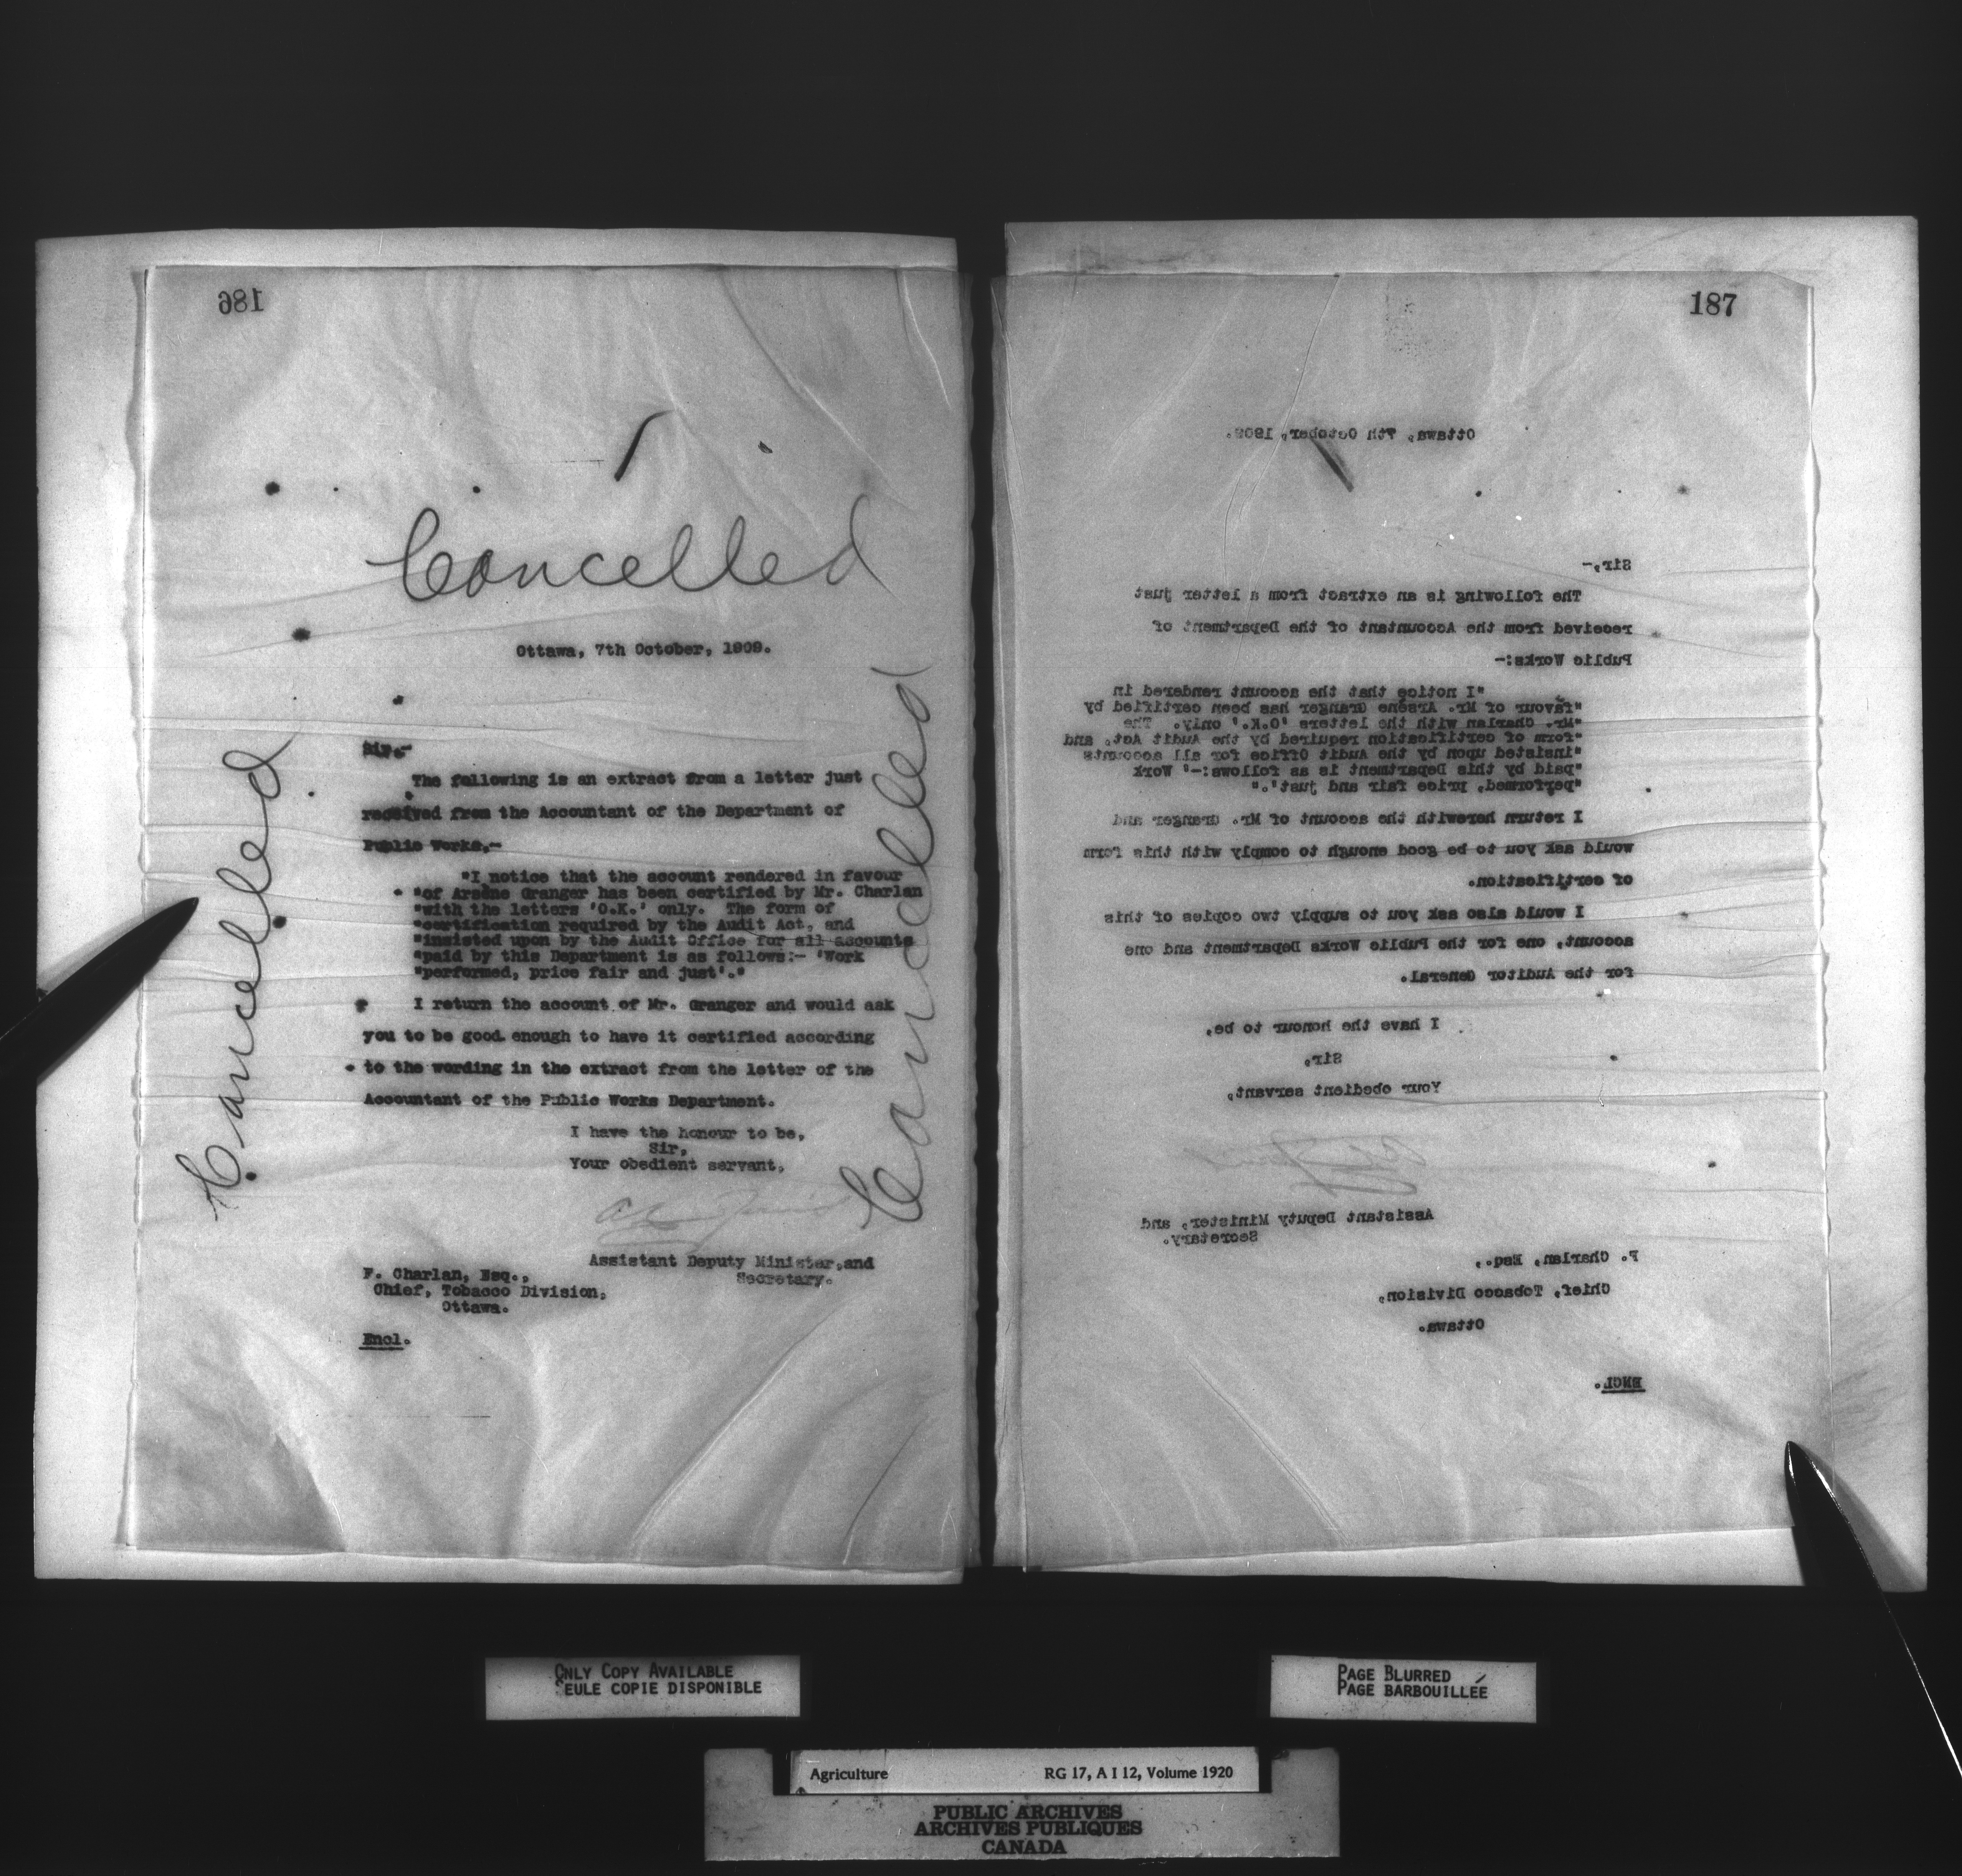 186
Cancelled
Ottawa, 7th October, 1909.
Cancelled
Cancelled
Sir,-
The following is an extract from a letter just
received from the Accountant of the Department of
Public Works,-
"I notice that the account rendered in favour
"of Arsène Granger has been certified by Mr. Charlan
"with the letters 'O.K.' only. The form of
"certification required by the Audit Act, and
"insisted upon by the Audit Office for all accounts
"paid by this Department is as follows:- 'Work
"performed, price fair and just'."
I return the account of Mr. Granger and would ask
you to be good enough to have it certified according
to the wording in the extract from the letter of the
Accountant of the Public Works Department.
I have the honour to be,
Sir,
Your obedient servant,
Assistant Deputy Minister,and
Secretary.
F. Charlan, Esq.,
Chief, Tobacco Division,
Ottawa.
Encl.
187
Ottawa, 7th October, 1909.
Sir,-
The following is an extract from a letter just
received from the Accountant of the Department of
Public Works:-
"I notice that the account rendered in
"favour of Mr. Arsène Granger has been certified by
"Mr. Charlan with the letters 'O.K.' only. The
"form of certification required by the Audit Act, and
"insisted upon by the Audit Office for all accounts
"paid by this Department is as follows:-' Work
"performed, price fair and just'."
I return herewith the account of Mr. Granger and
would ask you to be good enough to comply with this form
of certification.
I would also ask you to supply two copies of this
account, one for the Public Works Department and one
for the Auditor General.
I have the honour to be,
Sir,
Your obedient servant,
Assistant Deputy Minister, and
Secretary.
F. Charlan, Esq.,
Chief, Tobacco Division,
Ottawa.
ENCL.
ONLY COPY AVAILABLE
SEULE COPIE DISPONIBLE
PAGE BLURRED
PAGE BARBOUILLÉE
Agriculture RG 17, A I 12, Volume 1920
PUBLIC ARCHIVES
ARCHIVES PUBLIQUES
CANADA